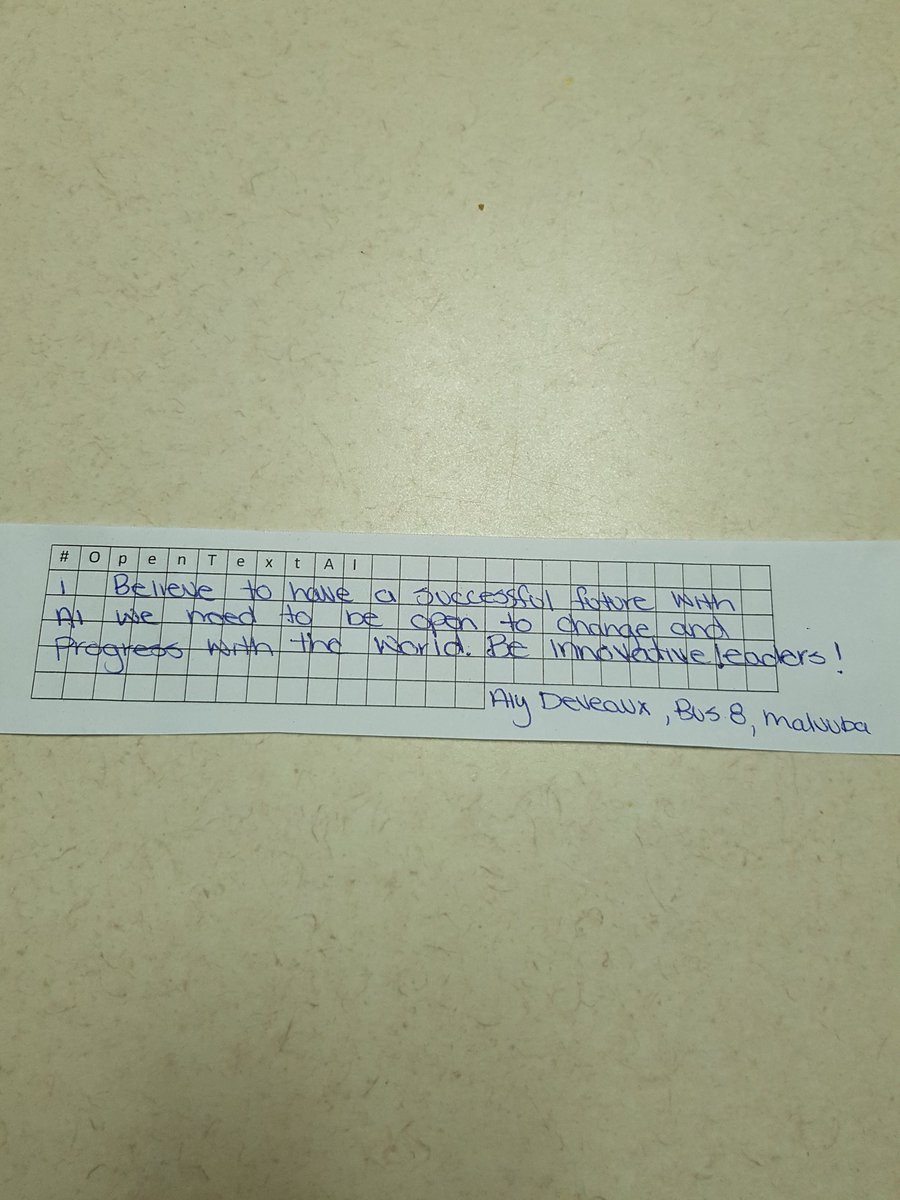 #OpenTextAI
I Believe to have a successful future with
AI we need to be open to change and
Progress with the world. Be innovative leaders!
Aly Deveaux, Bus 8, Maluuba